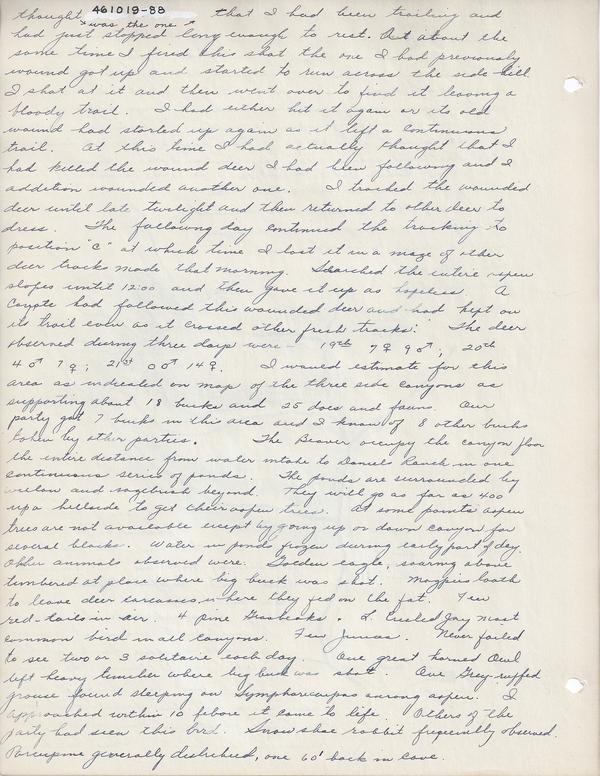 461019-88
thought was the one that I had been trailing and
had just stopped long enough to rest. But about the
same time I fired this shot the one I had previously
wound got up and started to run across the side hill
I shot at it and then went over to find it leaving a
bloody trail. I had either hit it again or its old
wound had started up again as it left a continuous
trail. At this time I had actually thought that I
had killed the wound deer I had been following and I
addition wounded another one. I tracked the wounded
deer until late twilight and then returned to other deer to
dress. The following day continued the tracking to
position "C" at which time I lost it in a maze of other
deer tracks made that morning. Searched the entire open
slopes until 12:00 and then gave it up as hopeless. A
Coyote had followed this wounded deer and had kept on
its trail even as it crossed other fresh tracks. The deer
observed during three days were - 19th 7♀ 9♂; 20th
4♂ 7♀; 21st 0♂ 14♀. I would estimate for this
area as indicated on map of the three side canyons as
supporting about 18 bucks and 25 does and fauns. Our
party got 7 bucks in this area and I know of 8 other bucks
taken by other parties. The Beaver occupy the canyon floor
the entire distance from water intake to Daniels Ranch in one
continuous series of ponds. The ponds are surrounded by
willow and sagebrush beyond. They will go as far as 400
up a hillside to get their aspen trees. At some points aspen
trees are not available except by going up on down canyon for
several blocks. Water in ponds frozen during early part of day.
Other animals observed were: Golden eagle, soaring above
timbered at place where big buck was shot. Magpies loath
to leave deer carcasses where they fed on the fat. Few
red-tails in air. 4 pine Grosbeaks. L. Crested Jay most
common bird in all canyons. Few Juncos. Never failed
to see two or 3 solitaire each day. One great horned Owl
left heavy timber where big buck was shot. One Grey-ruffed
grouse found sleeping on Symphoricarpos among aspen. I
approached within 10 before it came to life. Others of the
party had seen this bird. Snowshoe rabbit frequently observed.
Porcupine generally distributed, one 60' back in cave.